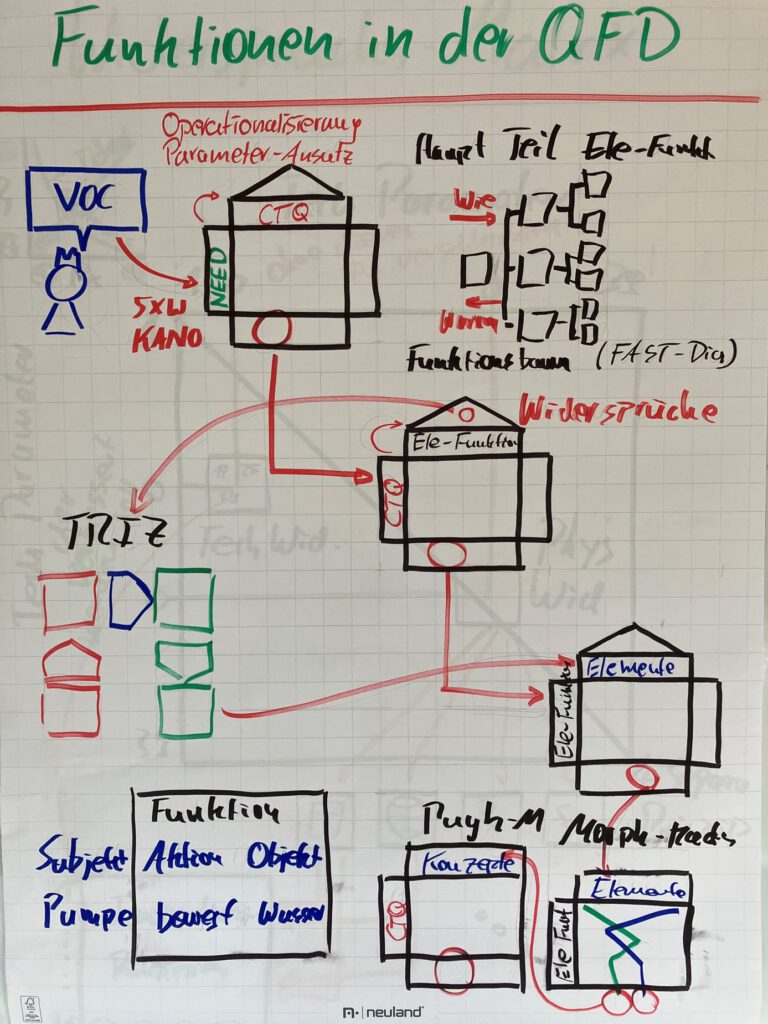 Funktionen in der QFD
Operationalisierung
Parameter-Ansatz
VOC
CTQ
NEED
5xW
KANO
Haupt Teil Ele-Funkt
Wie
Warum
Funktionsbaum (FAST-Dia)
Widersprüche
Ele-Funktion
CTQ
TRIZ
Elemente
Ele-Funktion
Funktion
Subjekt Aktion Objekt
Pumpe bewegt Wasser
Pugh-M
Konzepte
CTQ
Morph-Kasten
Elemente
Ele Funkt
neuland